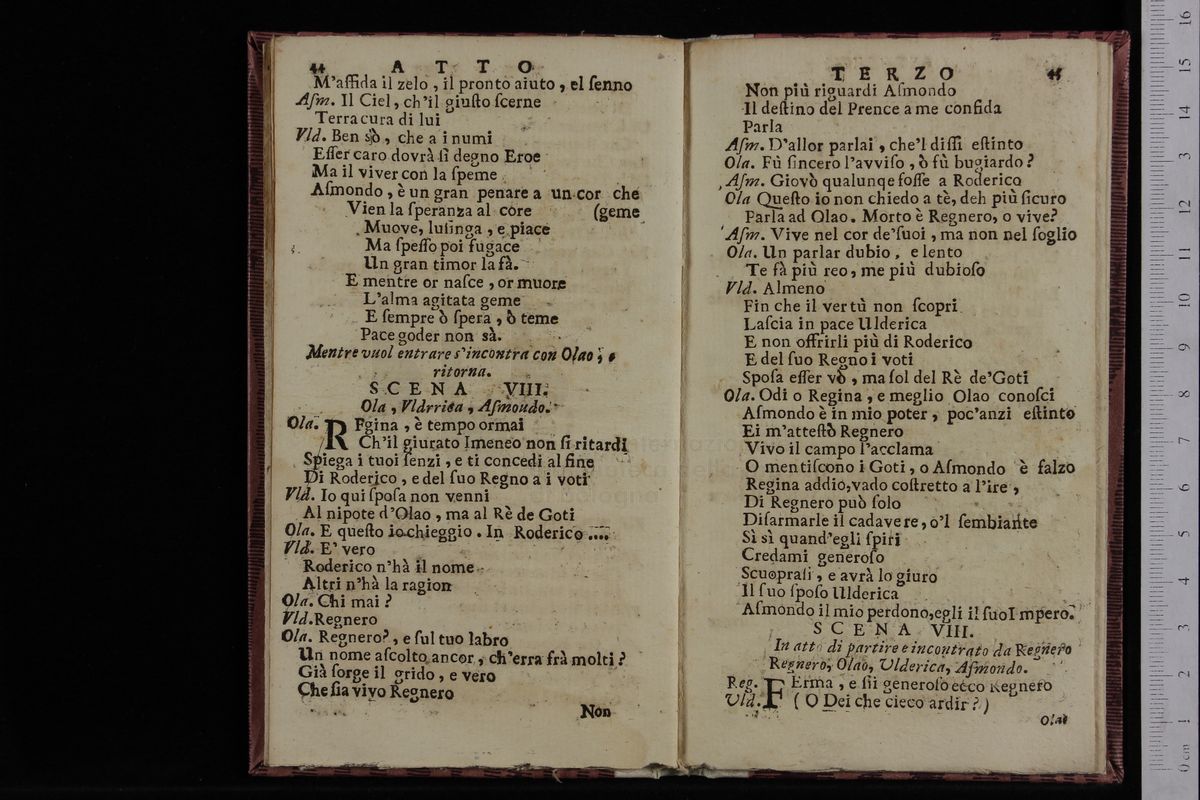 44 A T T O
M'affida il zelo, il pronto aiuto, el ſenno
Aſm. Il Ciel, ch'il giuſto ſcerne
Terra cura di lui
Vld. Ben sò, che a i numi
Eſſer caro dovrà ſi degno Eroe
Ma il viver con la ſpeme
Aſmondo, è un gran penare a un cor che
Vien la ſperanza al core (geme
Muove, luſinga, e piace
Ma ſpeſſo poi fugace
Un gran timor la fà.
E mentre or naſce, or muore
L'alma agitata geme
E ſempre ò ſpera, ò teme
Pace goder non sà.
Mentre vuol entrare s'incontra con Olao, e
ritorna.
S C E N A VIII.
Ola, Vldrriea, Aſmoudo.
Ola. REgina, è tempo ormai
Ch'il giurato Imeneo non ſi ritardi
Spiega i tuoi ſenzi, e ti concedi al fine
Di Roderico, e del ſuo Regno a i voti
Vld. Io qui ſpoſa non venni
Al nipote d'Olao, ma al Rè de Goti
Ola. E queſto io chieggio. In Roderico ....
Vld. E' vero
Roderico n'hà il nome
Altri n'hà la ragion
Ola. Chi mai?
Vld. Regnero
Ola. Regnero?, e ſul tuo labro
Un nome aſcolto ancor, ch'erra frà molti?
Già ſorge il grido, e vero
Che ſia vivo Regnero
Non
T E R Z O 45
Non più riguardi Aſmondo
Il deſtino del Prence a me confida
Parla
Aſm. D'allor parlai, che'l diſſi eſtinto
Ola. Fù ſincero l'avviſo, ò fù bugiardo?
Aſm. Giovò qualunqe foſſe a Roderico
Ola Queſto io non chiedo a tè, deh più ſicuro
Parla ad Olao. Morto è Regnero, o vive?
Aſm. Vive nel cor de'ſuoi, ma non nel ſoglio
Ola. Un parlar dubio, e lento
Te fà più reo, me più dubioſo
Vld. Almeno
Fin che il ver tù non ſcopri
Laſcia in pace Ulderica
E non offrirli più di Roderico
E del ſuo Regno i voti
Spoſa eſſer vò, ma ſol del Rè de'Goti
Ola. Odi o Regina, e meglio Olao conoſci
Aſmondo è in mio poter, poc'anzi eſtinto
Ei m'atteſtò Regnero
Vivo il campo l'acclama
O mentiſcono i Goti, o Aſmondo è falzo
Regina addio, vado coſtretto a l'ire,
Di Regnero può ſolo
Diſarmarle il cadavere, o'l ſembiante
Sì sì quand'egli ſpiri
Credami generoſo
Scuopraſi, e avrà lo giuro
Il ſuo ſpoſo Ulderica
Aſmondo il mio perdono, egli il ſuo I mpero.
S C E N A VIII.
In atto di partire e incontrato da Regnero
Regnero, Olao, Vlderica, Aſmondo.
Reg. FErma, e ſii generoſo ecco Regnero
Vld. ( O Dei che cieco ardir? )
Olae
16
15
14
13
12
11
10
9
8
7
6
5
4
3
2
1
0 cm